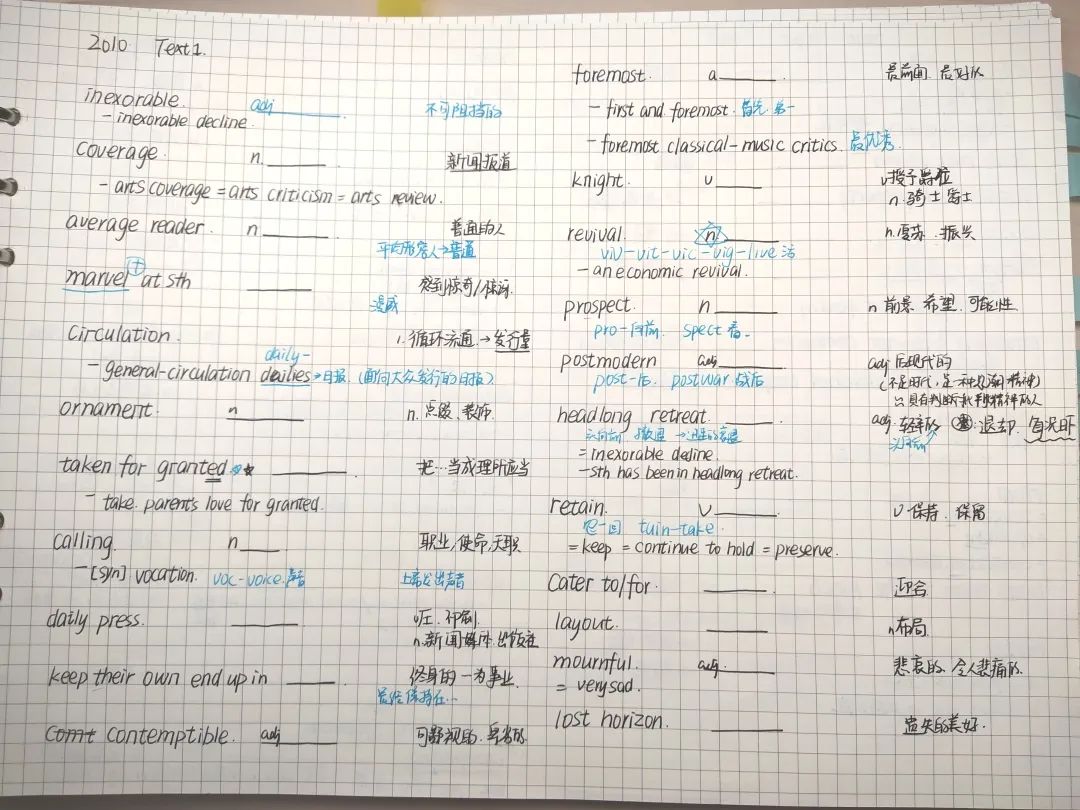 2010. Text1.
inexorable. adj 不可阻挡的
- inexorable decline.
coverage. n. 新闻报道
- arts coverage = arts criticism = arts review.
average reader. n 普通的人
marvel at sth
漫威
circulation. 1. 循环流通 → 发行量
daily-
- general-circulation dailies → 日报 (面向大众发行的日报)
ornament. n n. 点缀、装饰
taken for granted 把…当成理所应当
- take parent's love for granted.
calling. n 职业,使命,天职
- [syn] vocation. voc-voice.声音
上帝发出声音
daily press.
keep their own end up in
Comt contemptible. adj
foremost. a 最前面
- first and foremost. 首先.第一
- foremost classical-music critics. 最优秀
knight. v v授予爵位
n.骑士 爵士
revival. n n.复苏.振兴
viv-vit-vic-vig-live 活
- an economic revival.
prospect. n n 前景.希望.可能性
pro-向前 spect 看
postmodern adj adj 后现代的
post-后. postwar 战后
headlong retreat.
= inexorable decline.
- sth has been in headlong retreat.
retain. v v 保持.保留
tain-take.
= keep = continue to hold = preserve.
cater to/for. 迎合
layout. n布局
mournful. adj. 悲哀的.令人悲痛的.
= very sad.
lost horizon. 遗失的美好.